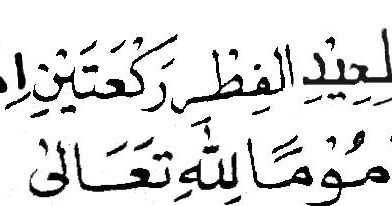 لِعِيْدِ الفِطْرِ رَكْعَتَيْنِ اِ
مُوْمًا لِلّٰهِ تَعَالىٰ